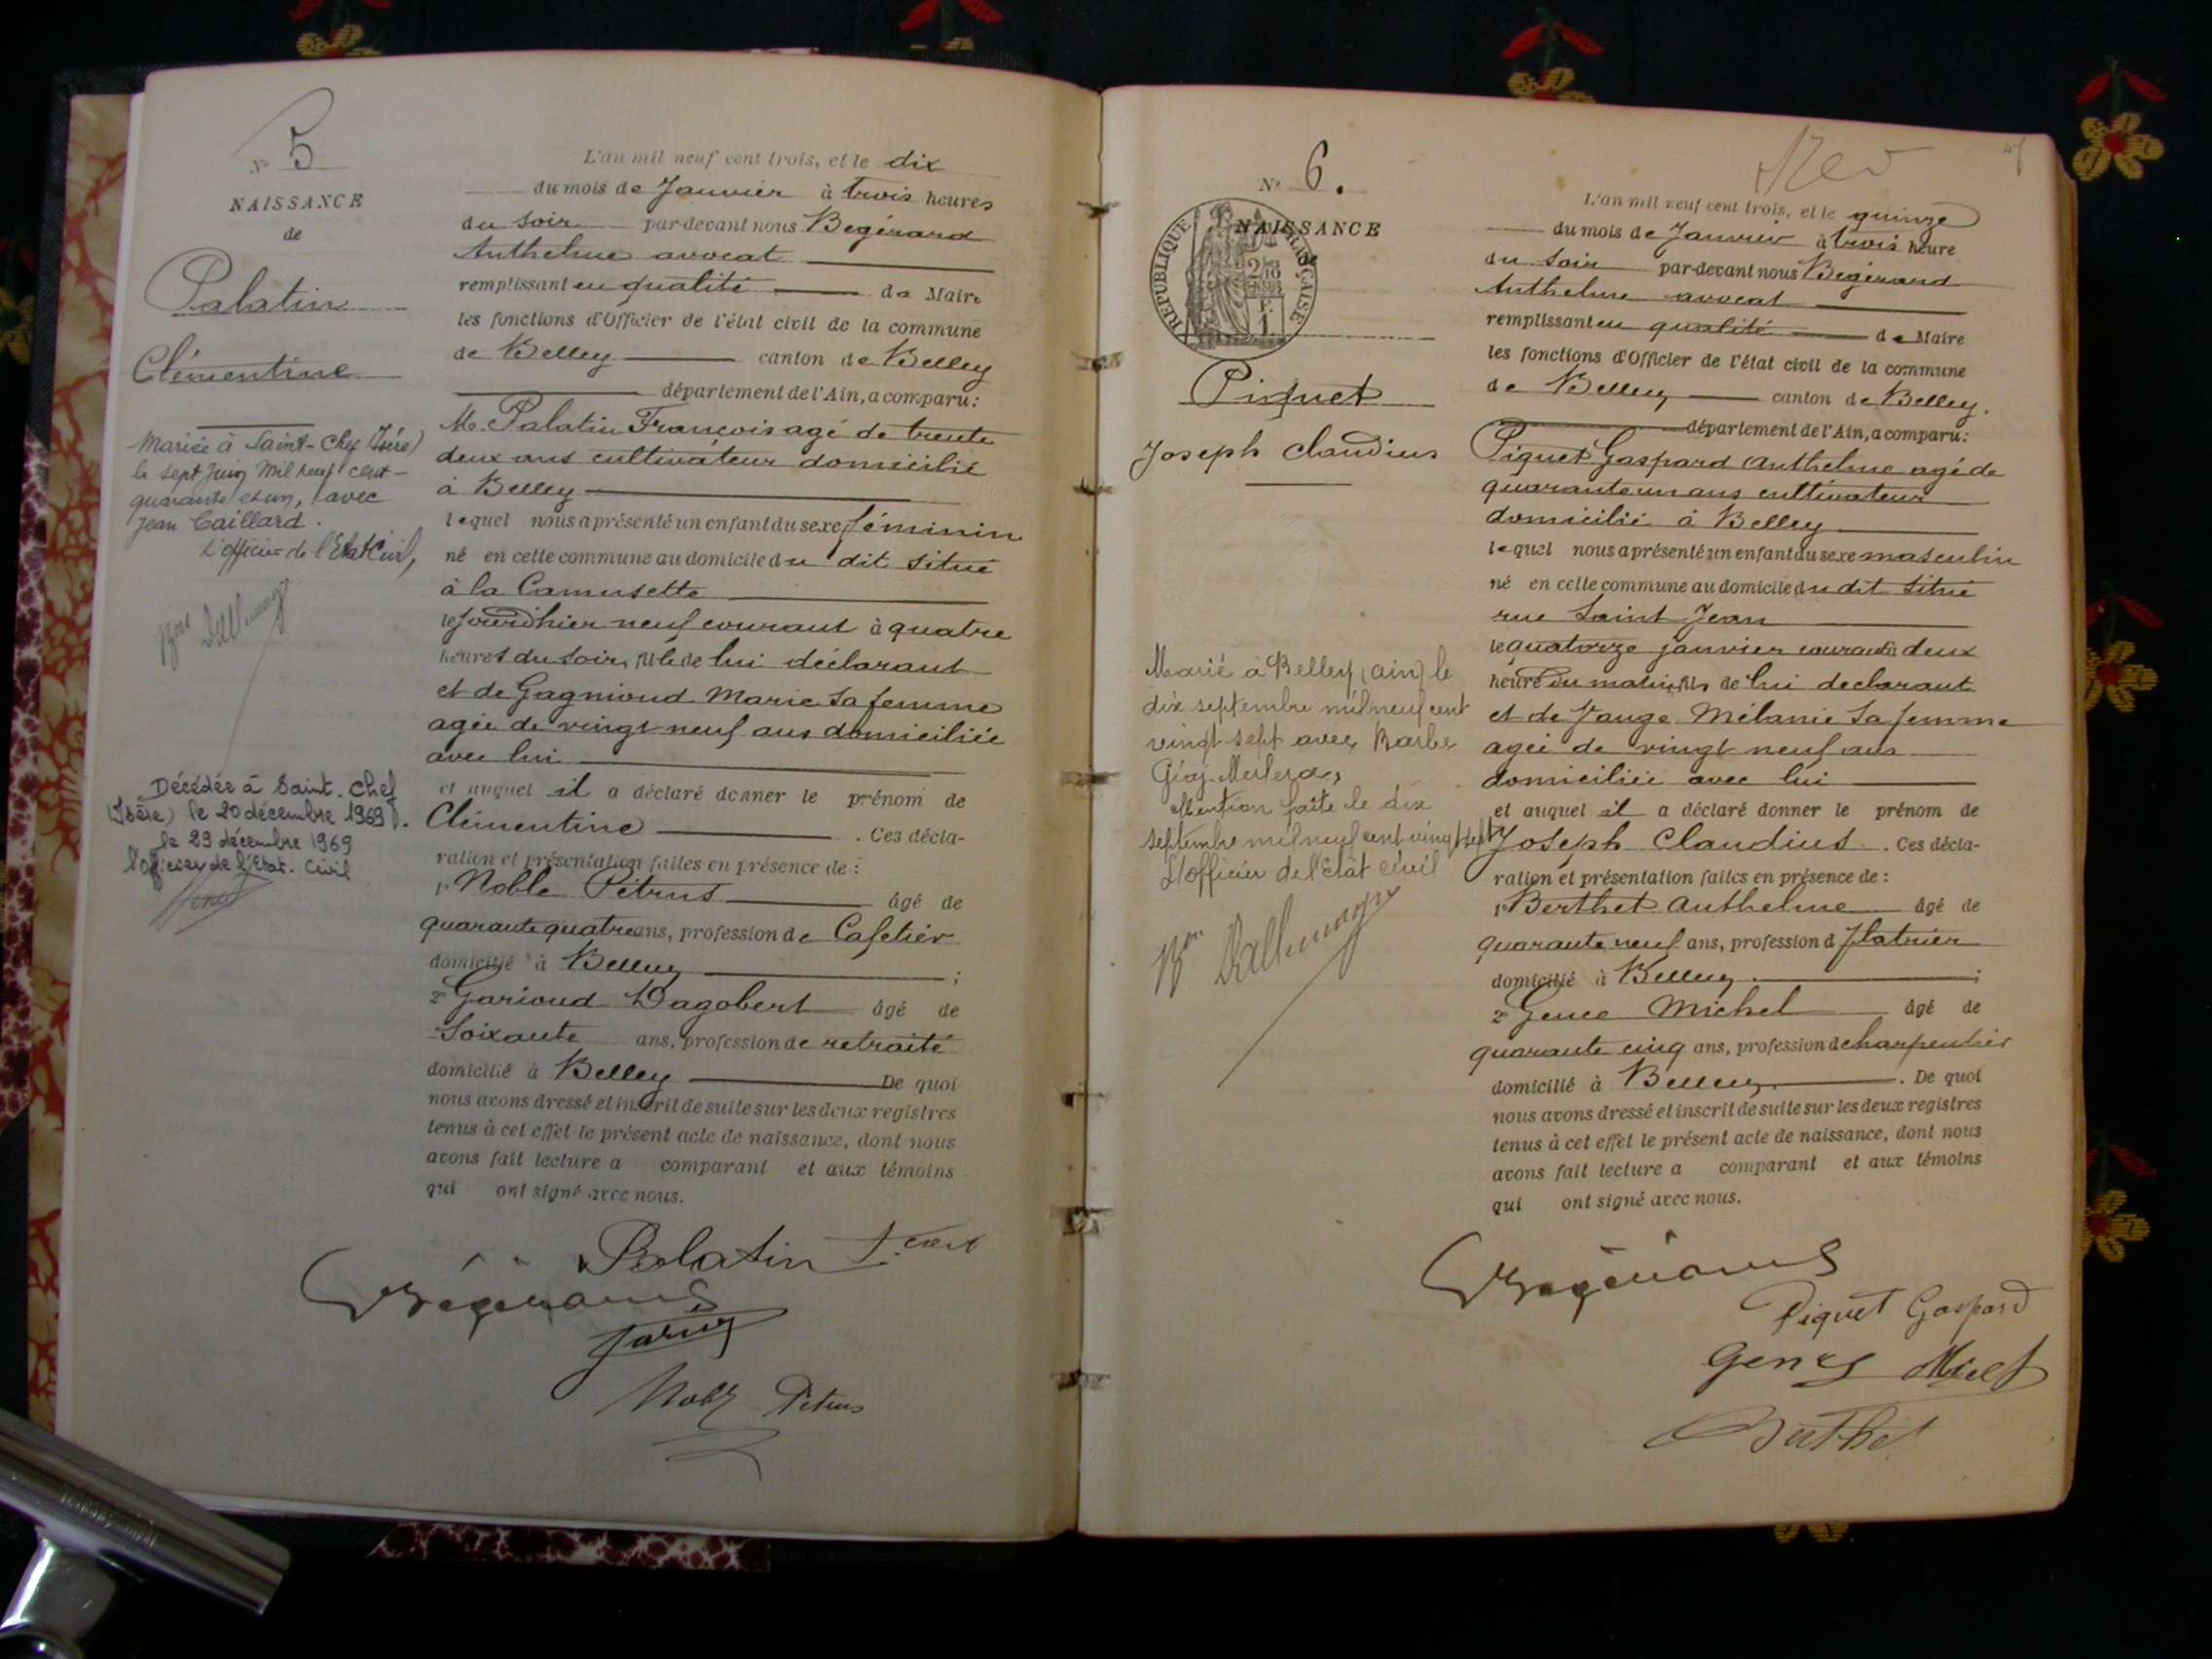 N° 5
NAISSANCE
de
Palatin
Clémentine
Mariée à Saint-Chef (Isère)
le sept Juin mil neuf cent-
quarante et un, avec
Jean Caillard.
L'officier de l'Etat Civil,
Bon Dallemagne
Décédée à Saint-Chef
(Isère) le 20 décembre 1969.
le 29 décembre 1969
l'officier de l'Etat-Civil
L'an mil neuf cent trois, et le dix
du mois de Janvier à trois heures
du soir par-devant nous Begérard
Anthelme avocat
remplissant en qualité de Maire
les fonctions d'Officier de l'état civil de la commune
de Belley canton de Belley
département de l'Ain, a comparu:
Mr. Palatin François agé de trente
deux ans cultivateur domicilié
à Belley
lequel nous a présenté un enfant du sexe féminin
né en cette commune au domicile du dit situé
à la Camusette
le jourd'hier neuf courant à quatre
heures du soir, fille de lui déclarant
et de Gagnioud Marie sa femme
agée de vingt neuf ans domiciliée
avec lui
et auquel il a déclaré donner le prénom de
Clémentine . Ces décla-
ration et présentation faites en présence de :
1° Noble Pétrus âgé de
quarante quatre ans, profession de Cafetier
domicilié à Belley ;
2° Garioud Dagobert âgé de
Soixante ans, profession de retraité
domicilié à Belley De quoi
nous avons dressé et inscrit de suite sur les deux registres
tenus à cet effet le présent acte de naissance, dont nous
avons fait lecture a comparant et aux témoins
qui ont signé avec nous.
Palatin
Bégérard
Noble Pétrus
N° 6.
NAISSANCE
REPUBLIQUE FRANÇAISE
Piquet
Joseph Claudius
Marié à Belley (ain) le
dix septembre mil neuf cent
vingt sept avec Barbe
Mention faite le dix
septembre mil neuf cent vingt sept
L'officier de l'état civil
Bon Dallemagne
L'an mil neuf cent trois, et le quinze
du mois de Janvier à trois heure
du soir par-devant nous Begérard
Anthelme avocat
remplissant en qualité de Maire
les fonctions d'Officier de l'état civil de la commune
de Belley canton de Belley.
département de l'Ain, a comparu:
Piquet Gaspard Anthelme agé de
quarante un ans cultivateur
domicilié à Belley
lequel nous a présenté un enfant du sexe masculin
né en cette commune au domicile du dit situé
rue Saint Jean
le quatorze janvier courant à deux
heure du matin, fils de lui déclarant
et de Mélanie sa femme
agée de vingt neuf ans
domiciliée avec lui
et auquel il a déclaré donner le prénom de
Joseph Claudius . Ces décla-
ration et présentation faites en présence de :
1° Berthet Anthelme âgé de
quarante neuf ans, profession d platrier
domicilié à Belley ;
2° Gence Michel âgé de
quarante cinq ans, profession de charpentier
domicilié à Belley . De quoi
nous avons dressé et inscrit de suite sur les deux registres
tenus à cet effet le présent acte de naissance, dont nous
avons fait lecture a comparant et aux témoins
qui ont signé avec nous.
Bégérard
Piquet Gaspard
Berthet